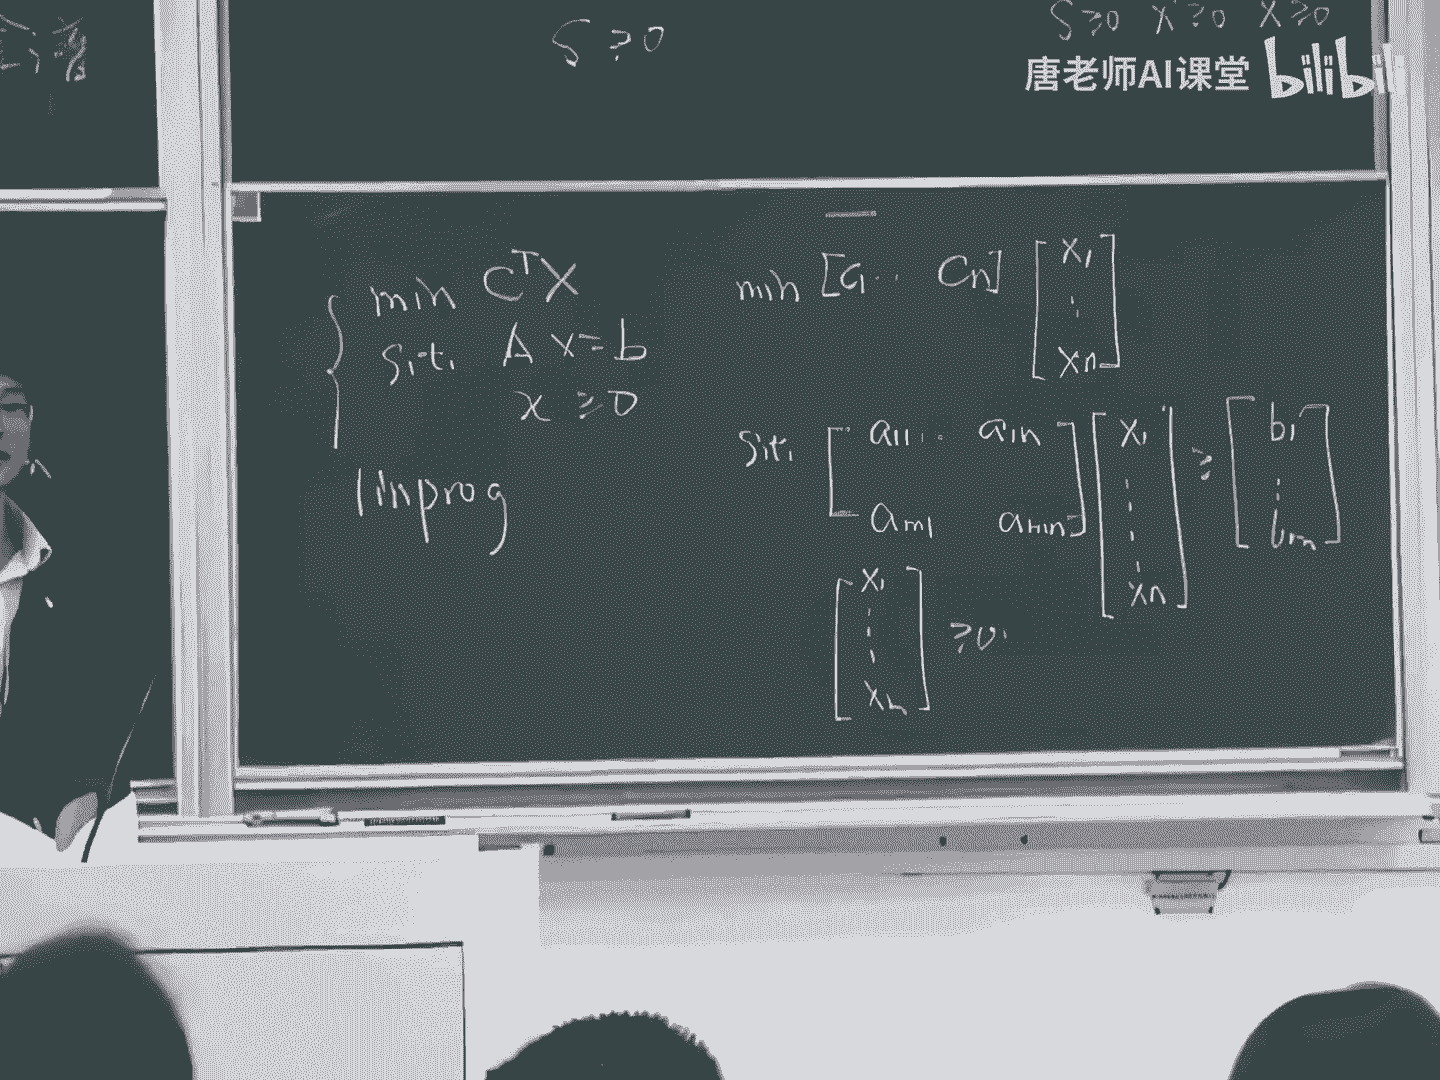 S ≥ 0
S ≥ 0 X' ≥ 0 X ≥ 0
唐老师AI课堂 bilibili
min C^T X
s.t. A x = b
x ≥ 0
linprog
min [C1 ·· Cn] [x1 ⋮ xn]
s.t. [a11 ·· a1n am1 amn] [x1 ⋮ xn] ≥ [b1 ⋮ bm]
[x1 ⋮ xn] ≥ 0